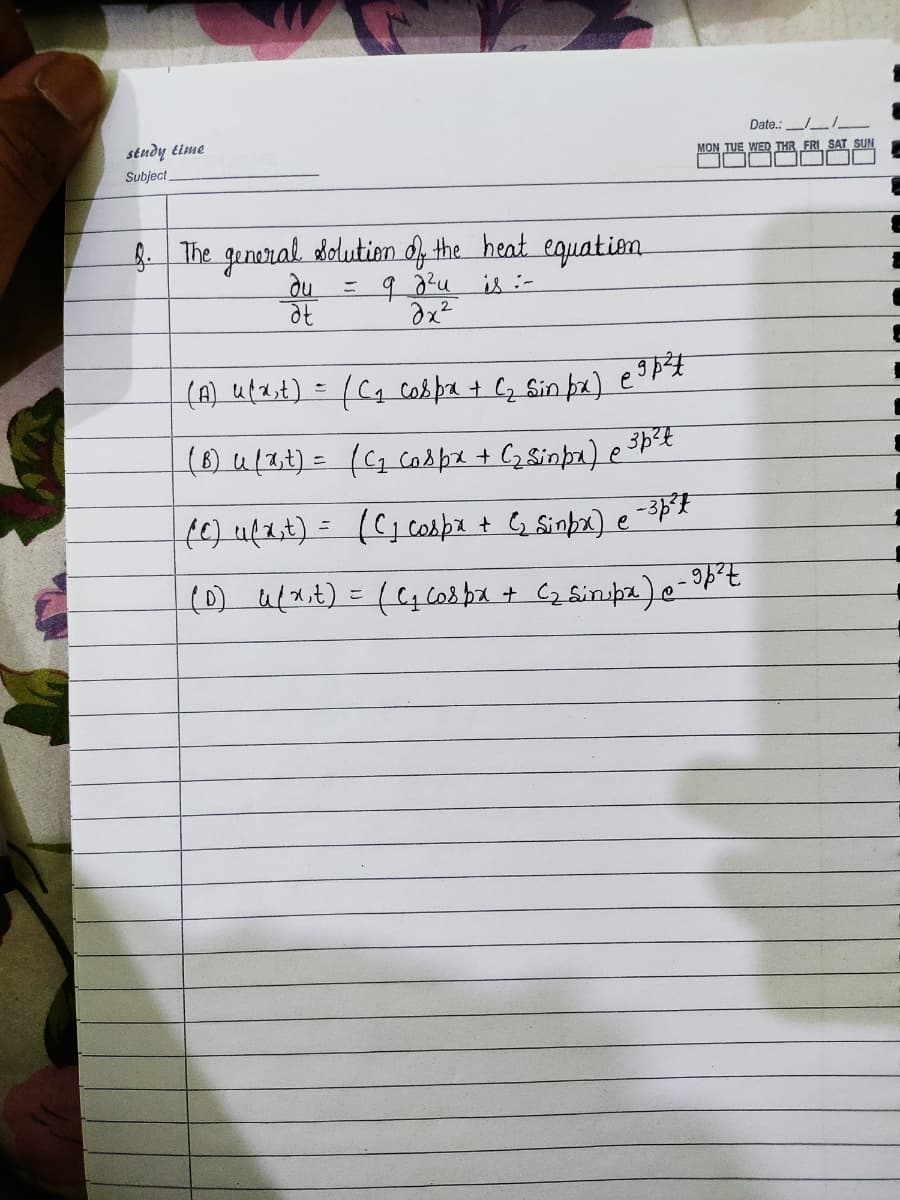 Date.: __/__/__
study time
MON TUE WED THR FRI SAT SUN
Subject
Q. The general solution of the heat equation
∂u/∂t = 9 ∂²u/∂x² is :-
(A) u(x,t) = (C₁ cospx + C₂ Sin px) e^9p²t
(B) u(x,t) = (C₁ cospx + C₂ sinpx) e^3p²t
(C) u(x,t) = (C₁ cospx + C₂ Sinpx) e^-3p²t
(D) u(x,t) = (C₁ cospx + C₂ Sinpx) e^-9p²t